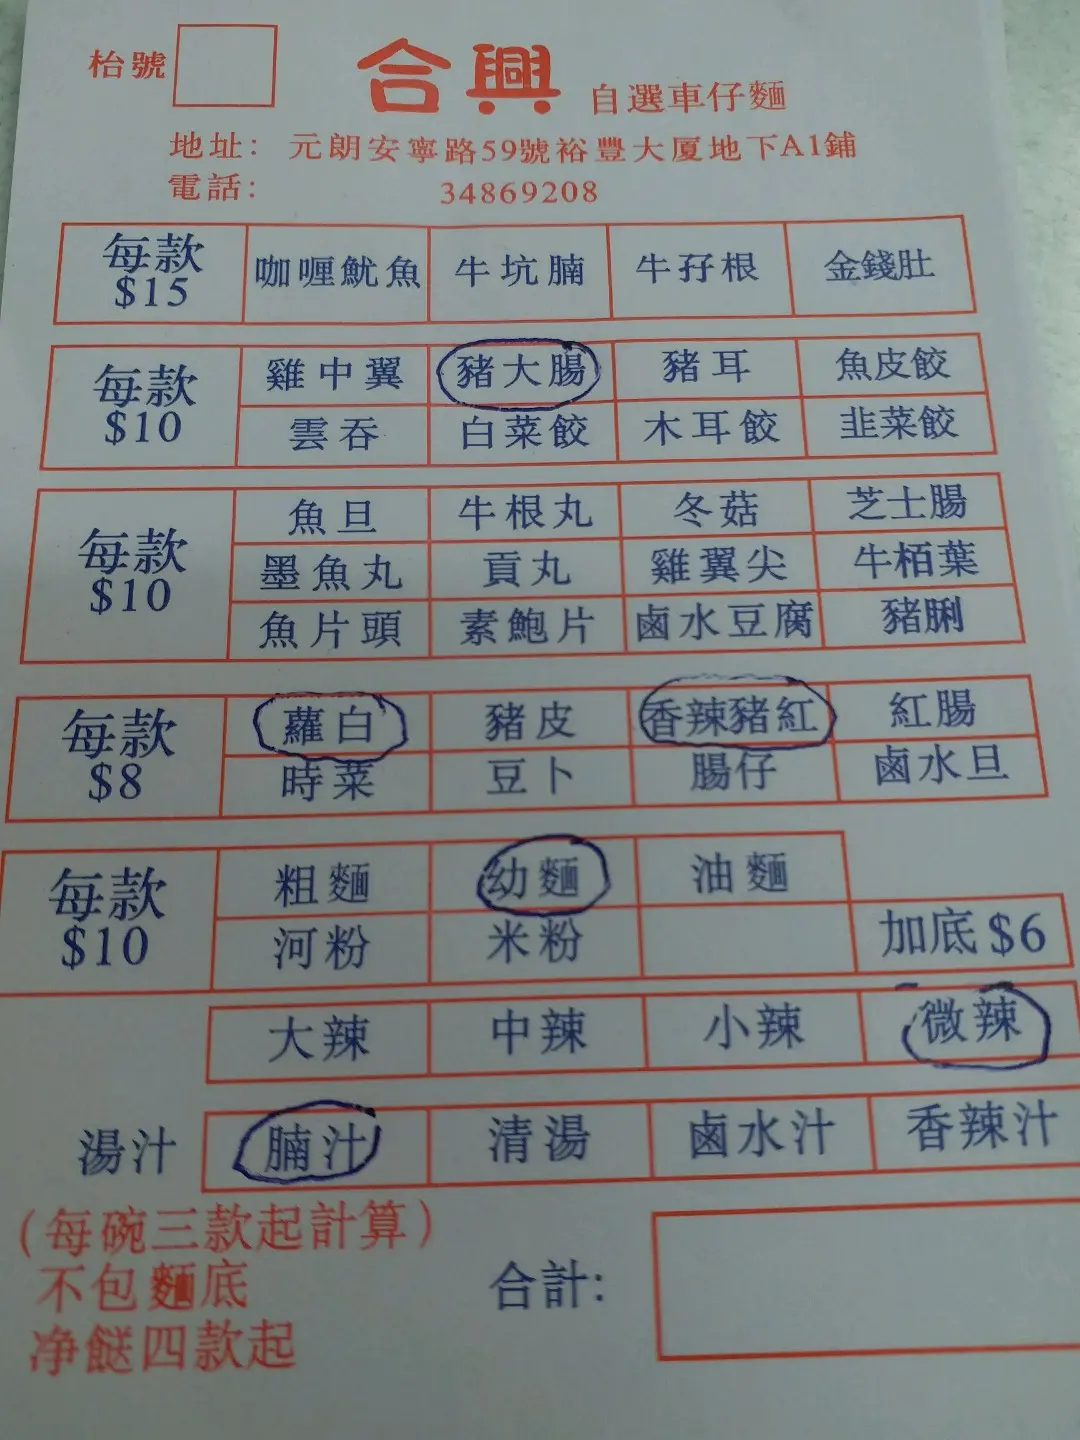 枱號
合興 自選車仔麵
地址: 元朗安寧路59號裕豐大厦地下A1鋪
電話: 34869208
每款 $15 咖喱魷魚 牛坑腩 牛孖根 金錢肚
每款 $10 雞中翼 豬大腸 豬耳 魚皮餃
雲吞 白菜餃 木耳餃 韭菜餃
每款 $10 魚旦 牛根丸 冬菇 芝士腸
墨魚丸 貢丸 雞翼尖 牛栢葉
魚片頭 素鮑片 鹵水豆腐 豬脷
每款 $8 蘿白 豬皮 香辣豬紅 紅腸
時菜 豆卜 腸仔 鹵水旦
每款 $10 粗麵 幼麵 油麵
河粉 米粉 加底 $6
大辣 中辣 小辣 微辣
湯汁 腩汁 清湯 鹵水汁 香辣汁
(每碗三款起計算)
不包麵底
净餸四款起
合計: